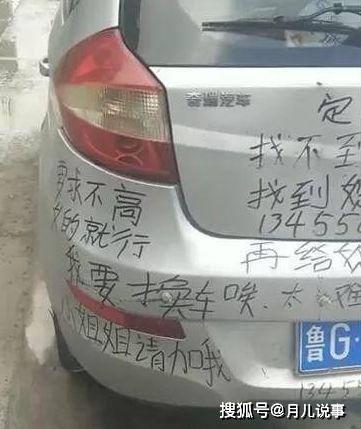 奇瑞汽车
定
找不到
要求不高
找到
女的就行
134558
再给
我要换车唉
小姐姐请加我
鲁G
1345
搜狐号@月儿说事